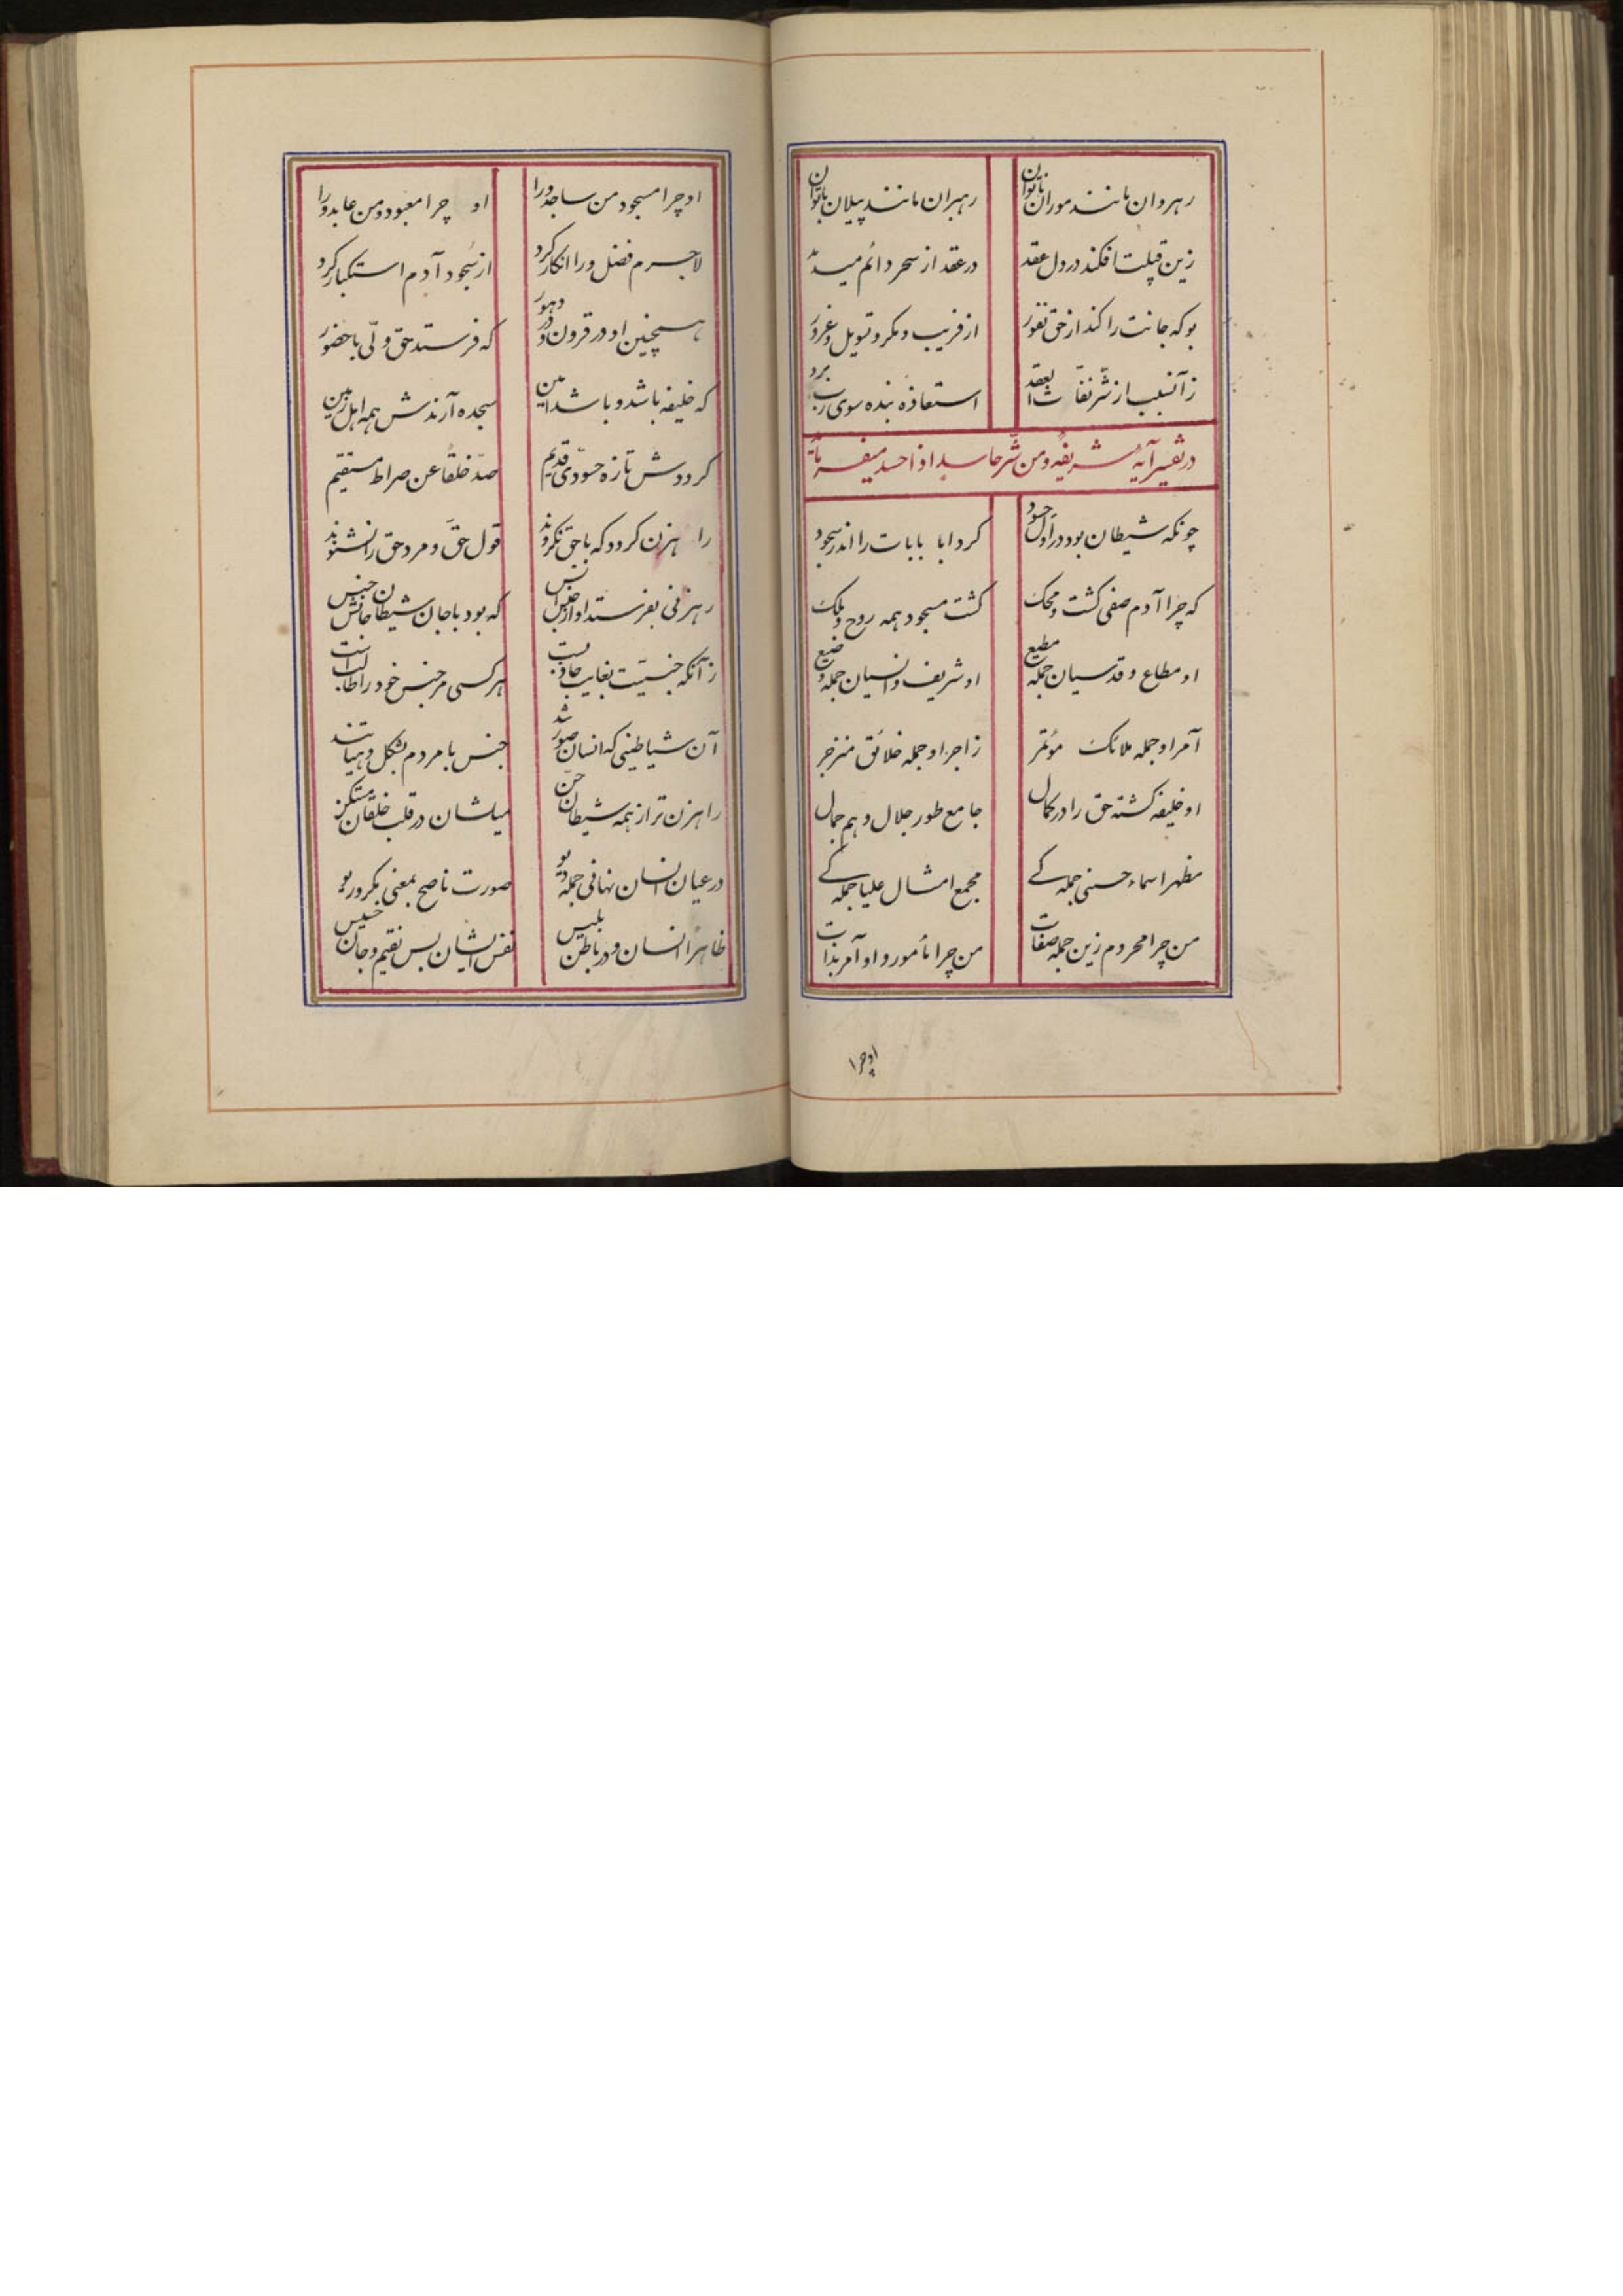 رهروان مانند موران ناتوان رهبران مانند پیلان باتوان
زین قبلت افکند در دل عقد در عقد از سحر دائم میدمد
بو که جانت را کند از حق نفور از فریب و مکر و تسویل و غرور
زآنسبب از شرّ نفّاثات العقد استعاذه بنده سوی رب برد
در تفسیر آیهٔ شریفه و من شرّ حاسد اذا حسد میفرماید
چونکه شیطان بود در اول حسود کرد ابا بابات را اندر سجود
که چرا آدم صفی گشت و محک گشت مسجود همه روح و ملک
او مطاع و قدسیان جمله مطیع او شریف و انسیان جمله وضیع
آمر او جمله ملائک مؤتمر زاجر او جمله خلائق منزجر
او خلیفه گشته حق را در کمال جامع طور جلال و هم جمال
مظهر اسماء حسنی جملگے مجمع امثال علیا جملگے
من چرا محرودم زین جمله صفات من چرا مأمور و او آمر بذات
او چرا
او چرا مسجود من ساجد ورا او چرا معبود و من عابد ورا
لاجرم فضل ورا انکار کرد از سجود آدم استکبار کرد
همچنین او در قرون و در دهور که فرستد حق ولّی باحضور
که خلیفه باشد و باشد امین سجده آرندش همه اهل زمین
گرددش تازه حسودّی قدیم صدّ خلقا عن صراط مستقیم
راهزن گردد که باحق نگروند قول حقّ و مرد حق را نشنوند
رهزنی بفرستد او از جنس انس که بود باجان شیطان جانش جنس
زآنکه جنسیّت بغایت جاذبست هرکسی مر جنس خود را طالبست
آن شیاطینی که انسان صورتند جنس با مردم بشکل و هیأتند
راهزن تر از همه شیطان جنّ میلشان در قلب خلقان مستکن
در عیان انسان نهانی جمله دیو صورت ناصح بمعنی مکر و ریو
ظاهرا انسان و در باطن بلیس نفس ایشان بس نقیم و جان خسیس